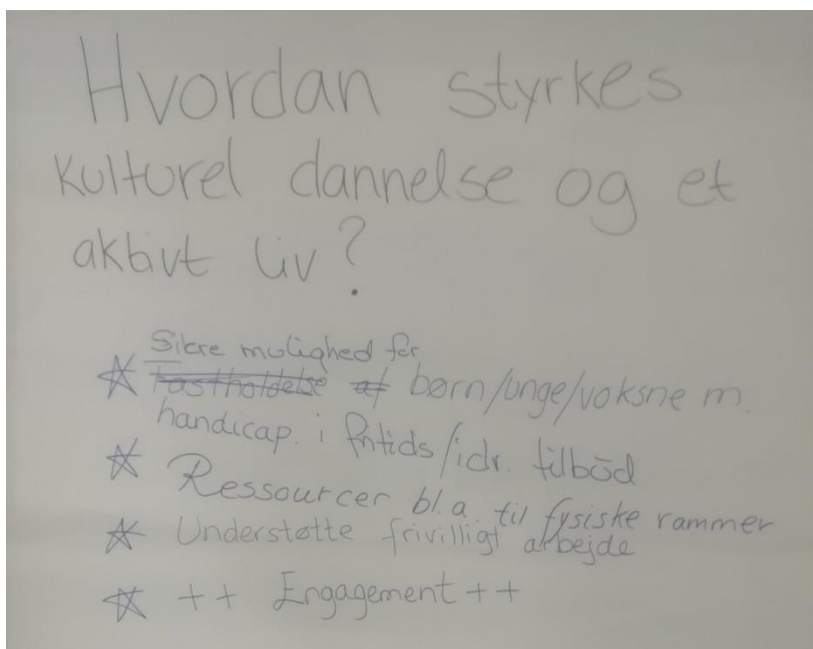 Hvordan styrkes
kulturel dannelse og et
aktivt liv?
☆ Sikre mulighed for
fastholdelse af børn/unge/voksne m.
handicap. i fritids/idr. tilbud
☆ Ressourcer bl.a. til fysiske rammer
☆ Understøtte frivilligt arbejde
☆ ++ Engagement ++